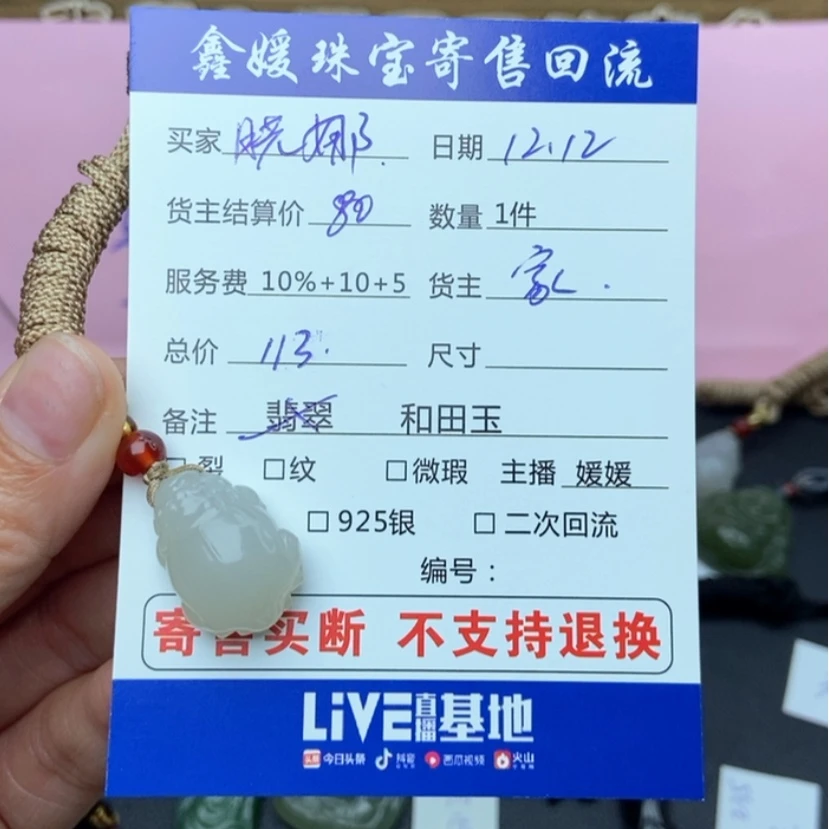 鑫媛珠宝寄售回流
买家 晓娜 日期 12.12
货主结算价 80 数量 1件
服务费 10%+10+5 货主 家
总价 113. 尺寸
备注 翡翠 和田玉
□裂 □纹 □微瑕 主播 媛媛
□925银 □二次回流
编号：
寄售买断 不支持退换
LiVE直播基地
头条 今日头条 抖音 西瓜视频 火山